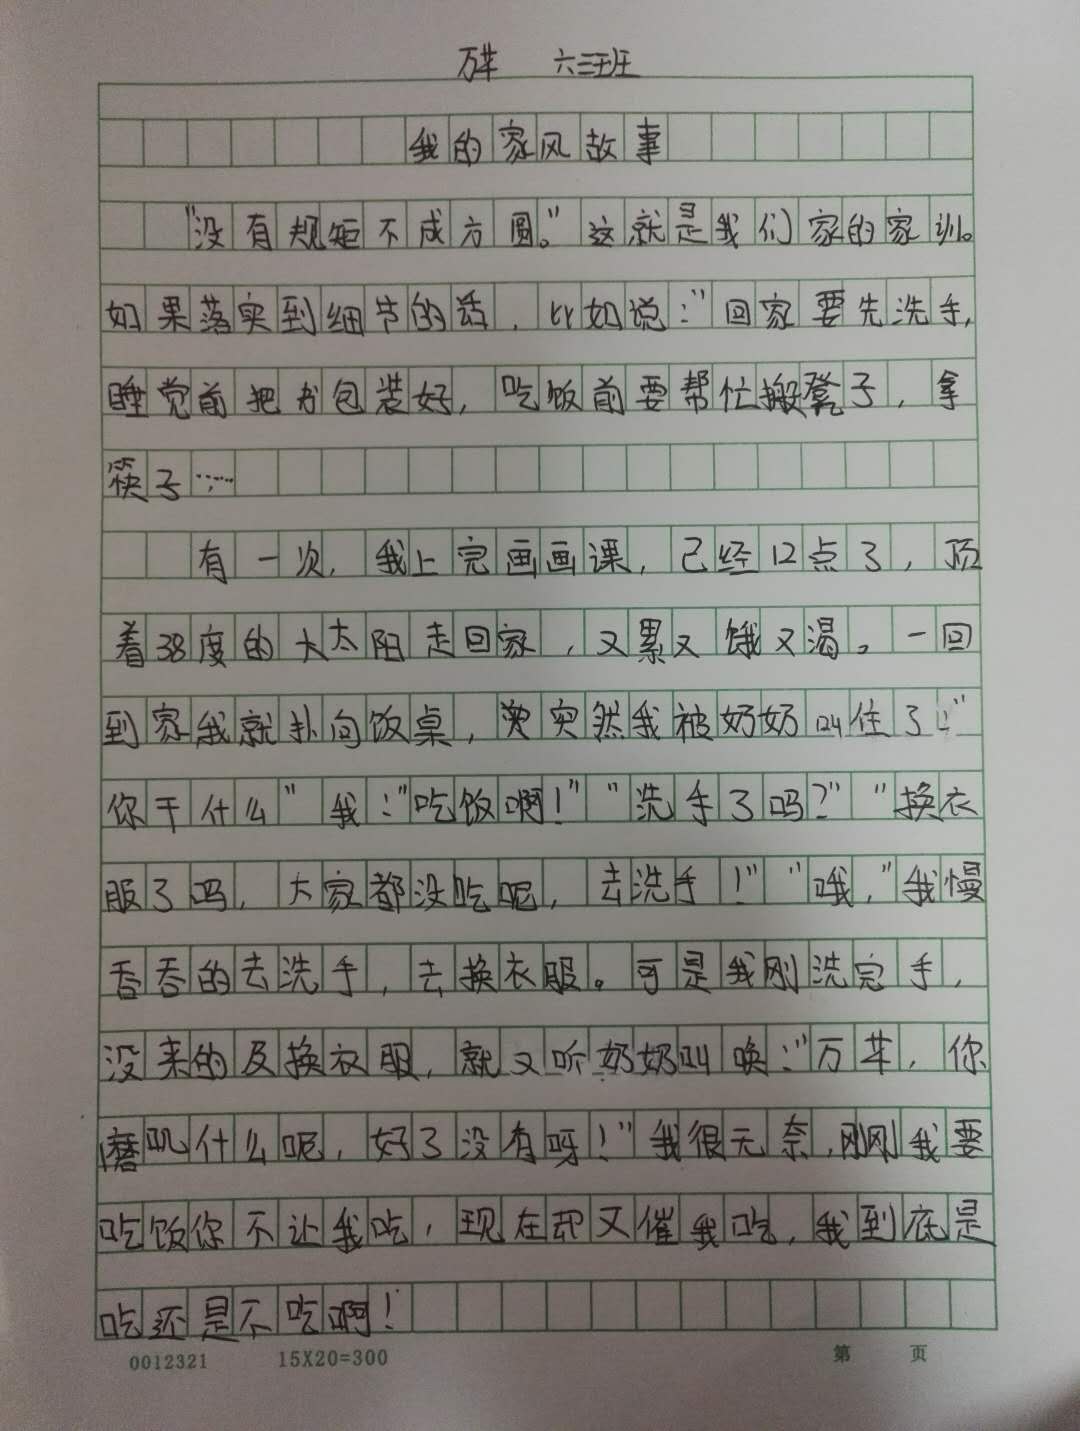 万芊 六三班
我的家风故事
“没有规矩不成方圆。”这就是我们家的家训。
如果落实到细节的话，比如说：“回家要先洗手，
睡觉前把书包装好，吃饭前要帮忙搬凳子，拿
筷子……
有一次，我上完画画课，已经12点了，顶
着38度的大太阳走回家，又累又饿又渴。一回
到家我就扑向饭桌，突然我被奶奶叫住了：“
你干什么”我：“吃饭啊！”“洗手了吗？”“换衣
服了吗，大家都没吃呢，去洗手！”“哦，”我慢
吞吞的去洗手，去换衣服。可是我刚洗完手，
没来的及换衣服，就又听奶奶叫唤：“万芊，你
磨叽什么呢，好了没有呀！”我很无奈，刚刚我要
吃饭你不让我吃，现在却又催我吃，我到底是
吃还是不吃啊！
0012321 15X20=300 第 页